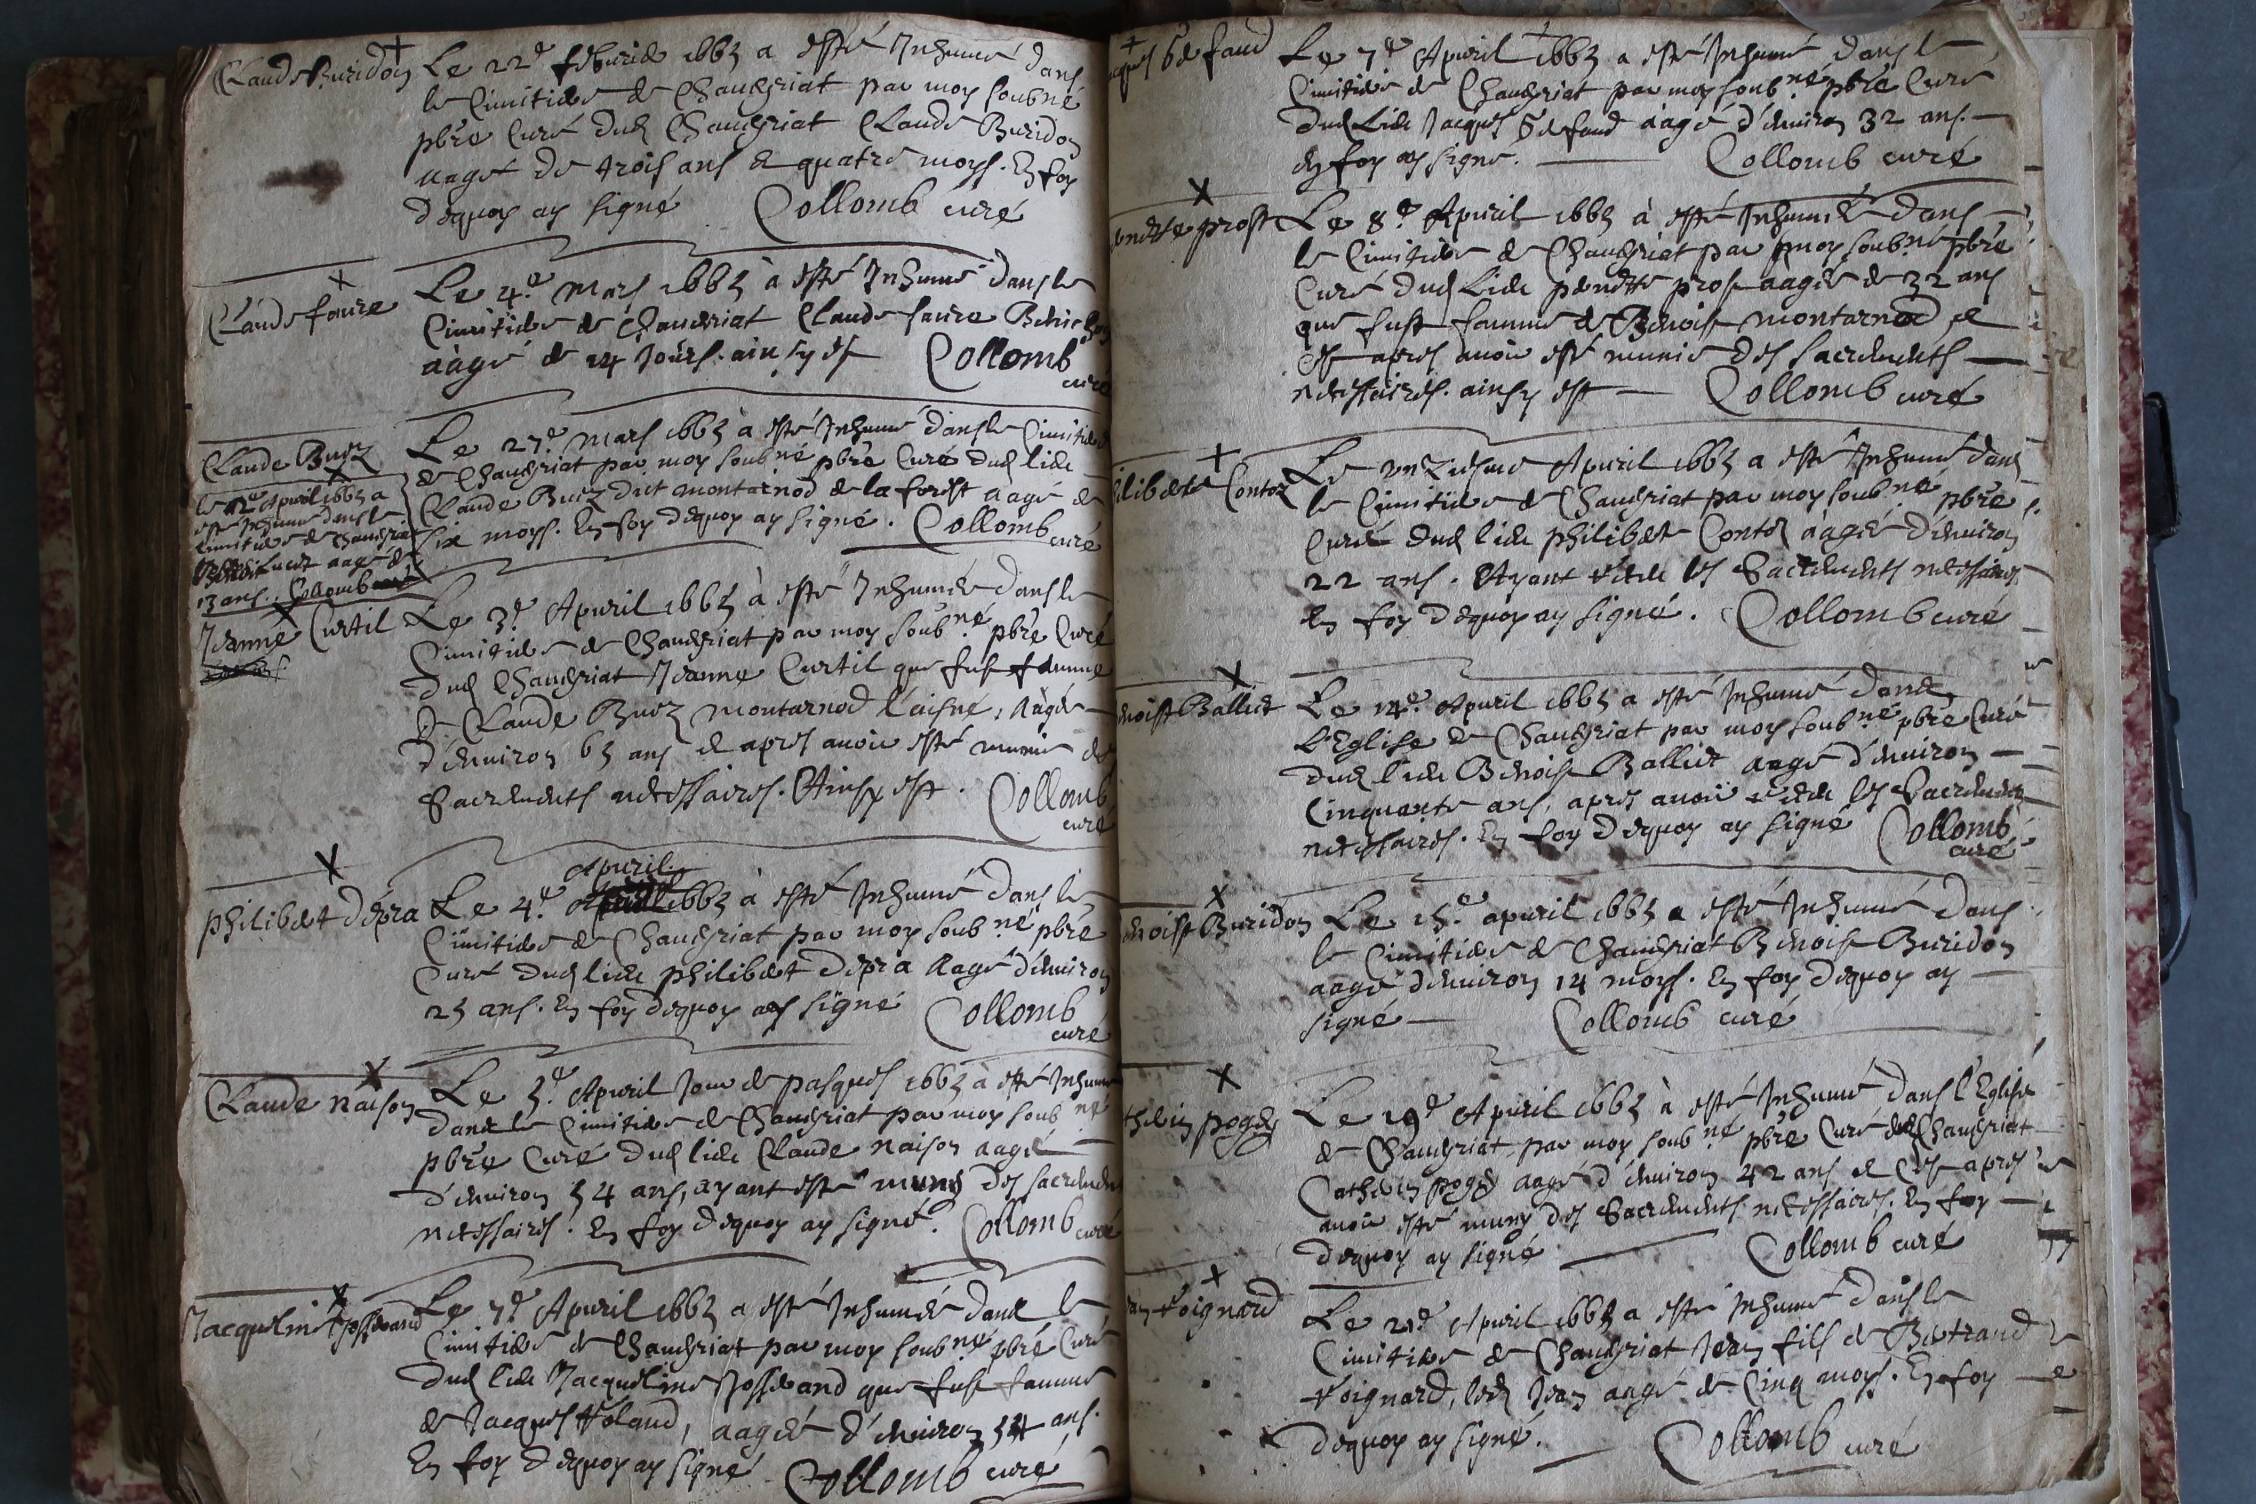 Claude Buridon
Le 22e febvrier 1665 a esté Inhumé dans
le Cimitiere de Chaveyriat par moy soubné
pbre Curé dud Chaveyriat Claude Buridon
aagé de trois ans & quatre moys. En foy
dequoy ay signé Collomb curé
Claude faure
Le 4.e Mars 1665 à esté Inhumé dans le
Cimitiere de Chaveyriat Claude faure
aàgé de 14 Jours. ainsy est Collomb
curé
Claude Buez
Le 27e Mars 1665 à esté Inhumé dans le Cimitiere
de Chaveyriat par moy soubné pbre Curé dud lieu
Claude Buez dict montarnod de la forest aagé de
six moys. En foy dequoy ay signé. Collomb
curé
le 12e Apuril 1665 a
esté Inhumé dans le
Cimitiere de Chaveyriat
Benoist aagé de
13 ans. Collomb curé
Jeanne Curtil
Le 3e Apuril 1665 à esté Inhumée dans le
Cimitiere de Chaveyriat par moy soubné pbre Curé
dud Chaveyriat Jeanne Curtil que fust femme
de Claude Buez montarnod l'aisné, Aagée
d'environ 65 ans et apres avoir esté munie des
Sacrements necessaires. Ainsy est. Collomb
curé
philibert dépra
Apuril
Le 4.e 1665 à esté Inhumé dans le
Cimitiere de Chaveyriat par moy soubné pbre
Curé dud lieu philibert depra Aagé d'environ
25 ans. En foy dequoy ay signé Collomb
curé
Claude naison
Le 5.e Apuril Jour de pasques 1665 à esté Inhumé
dans le Cimitiere de Chaveyriat par moy soubné
pbre Curé dud lieu Claude naison aagé
d'environ 54 ans, ayant esté muny des sacrements
necessaires. En foy dequoy ay signé. Collomb curé
Jacqueline Josserand
Le 7e Apuril 1665 a esté Inhumée dans le
Cimitiere de Chaveyriat par moy soubné pbre Curé
dud lieu Jacqueline Josserand que fust famme
de Jacques Voland, aagée d'environ 54 ans.
En foy dequoy ay signé Collomb curé
Le 7e Apuril 1665 a esté Inhumé dans le
Cimitiere de Chaveyriat par moy soubné pbre Curé
dud Lieu Jacques aàgé d'environ 32 ans.
En foy ay signé. Collomb curé
Le 8.e Apuril 1665 à esté Inhumée dans
le Cimitiere de Chaveyriat par moy soubné pbre
Curé dud Lieu pernette prost aagée de 32 ans
que fust famme de Benoist montarnod et
est apres avoir esté munie des sacrements
necessaires. ainsy est Collomb curé
Le unziesme Apuril 1665 a esté Inhumé dans
le Cimitiere de Chaveyriat par moy soubné pbre
Curé dud lieu philiberte Contoz aàgée d'environ
22 ans. Ayant receu les Sacrements necessaires
En foy dequoy ay signé. Collomb curé
Le 14e. Apuril 1665 a esté Inhumé dans
L'Eglise de Chaveyriat par moy soubné pbre Curé
dud lieu Benoist Balliet aagé d'environ
Cinquante ans, apres avoir receu les Sacrements
necessaires. En foy dequoy ay signé Collomb
curé
Le 15.e apuril 1665 a esté Inhumé dans
le Cimitiere de Chaveyriat Benoist Buridon
aagé d'environ 14 moys. En foy dequoy ay
signé Collomb curé
Le 19e Apuril 1665 à esté Inhumé dans l'Eglise
de Chaveyriat par moy soubné pbre Curé dud Chaveyriat
Catherin aagé d'environ 42 ans et est apres
avoir esté muny des Sacrements necessaires. En foy
dequoy ay signé Collomb curé
Le 21e Apuril 1665 a esté Inhumé dans le
Cimitiere de Chaveyriat Jean fils de Bertrand
Voignard, led Jean aagé de Cinq moys. En foy
dequoy ay signé. Collomb curé